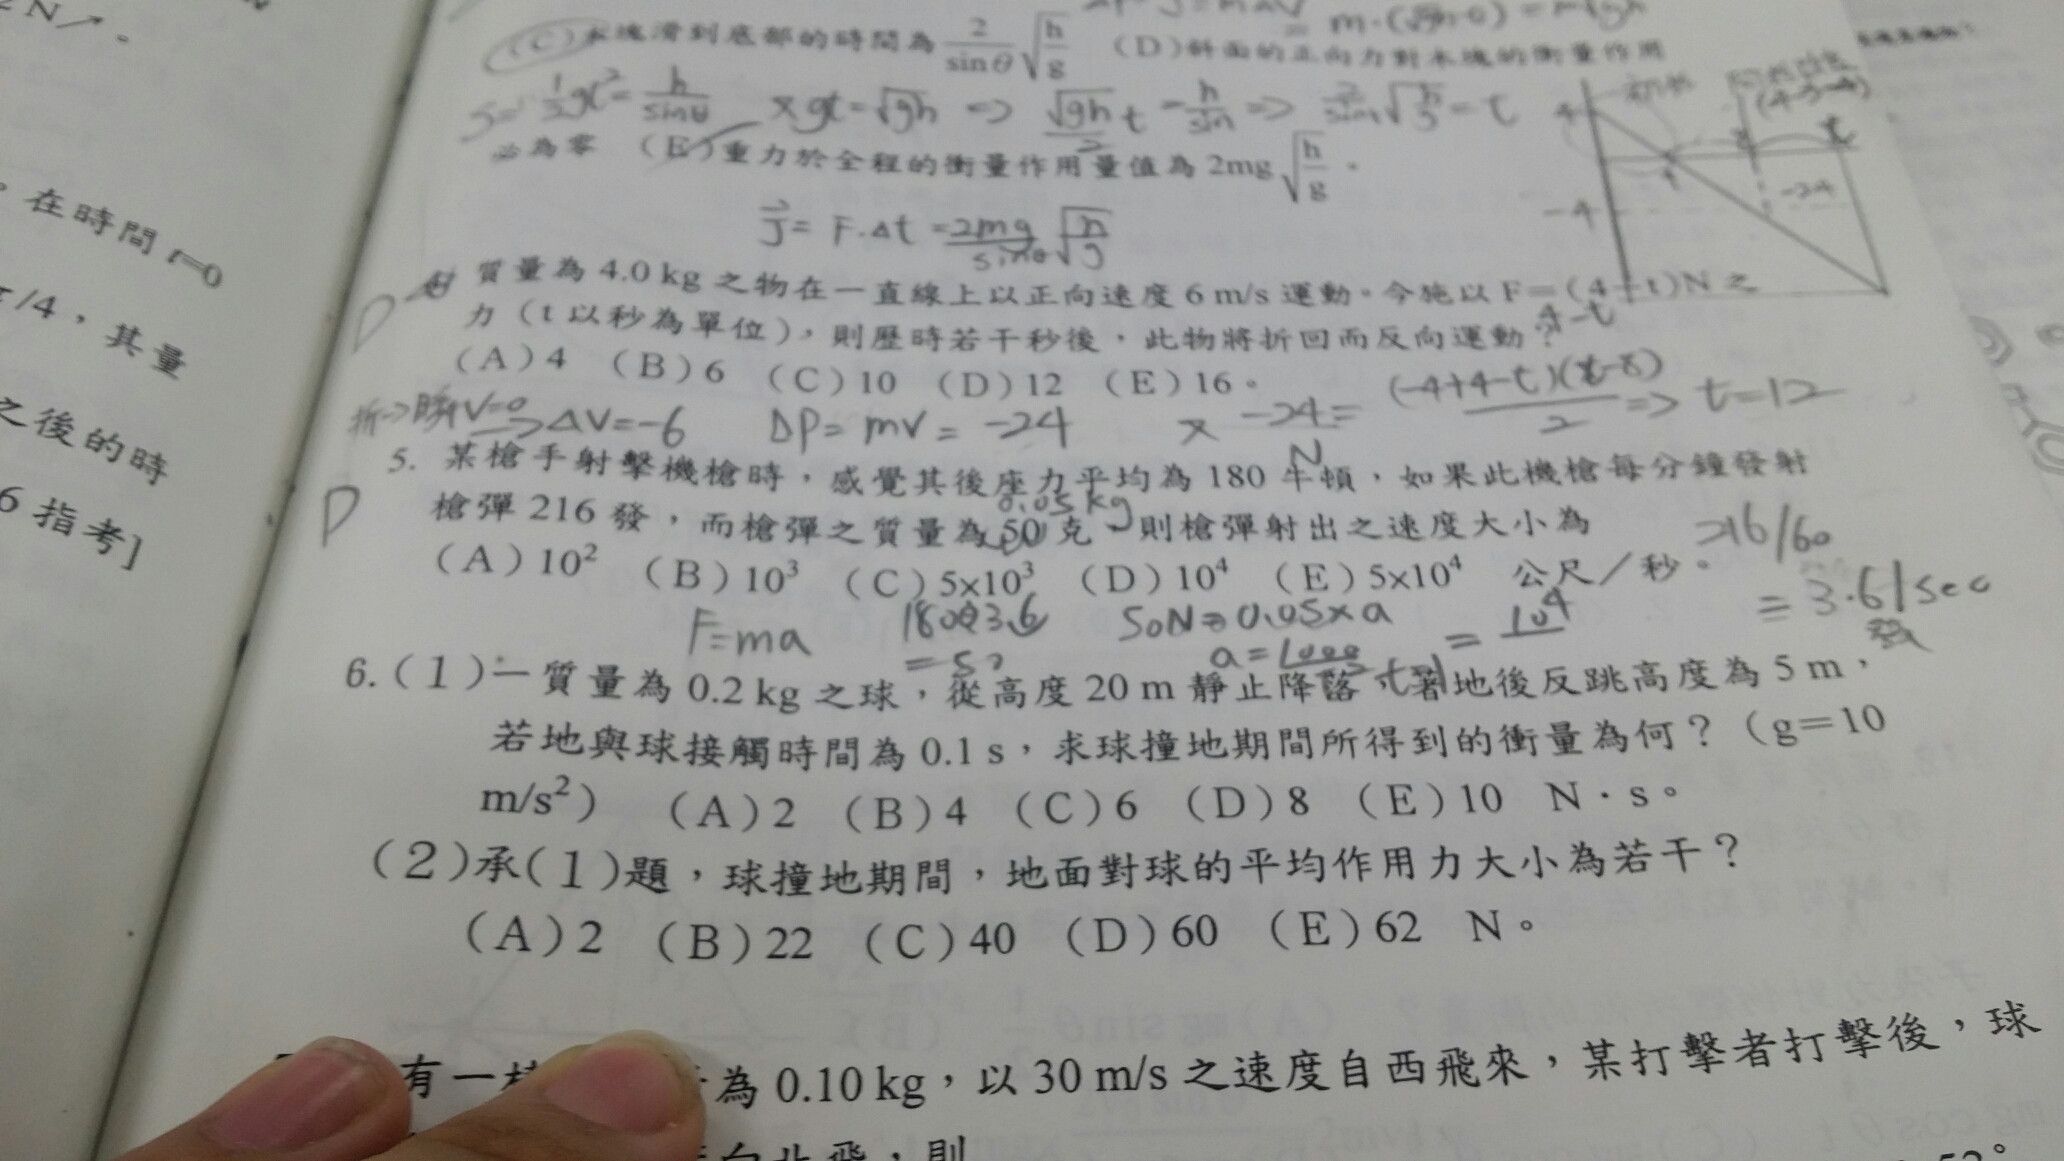 2 N
在時間 t=0
π/4，其量
之後的時
6 指考]
= m·(√gh-0) = m√gh
(C)木塊滑到底部的時間為 2/sinθ √h/g (D)斜面的正向力對木塊的衝量作用
S= ½gt² = h/sinθ × gt=√gh => √gh/2 t = h/sin => 2/sin √h/g = t
必為零 (E)重力於全程的衝量作用量值為 2mg √h/g。
J = F·Δt = 2mg/sinθ √h/g
4
-4
-24
t
質量為 4.0 kg 之物在一直線上以正向速度 6 m/s 運動。今施以 F=(4-t)N 之
力（t 以秒為單位），則歷時若干秒後，此物將折回而反向運動？
4-t
(A)4 (B)6 (C)10 (D)12 (E)16。
D
折→瞬 V=0 => ΔV=-6 ΔP= mV = -24 × -24= (-4+4-t)(t-8)/2 => t=12
5. 某槍手射擊機槍時，感覺其後座力平均為 180 牛頓，如果此機槍每分鐘發射
N
D
槍彈 216 發，而槍彈之質量為 50 克，則槍彈射出之速度大小為
0.05 kg
216/60
(A)10² (B)10³ (C)5x10³ (D)10⁴ (E)5x10⁴ 公尺／秒。
= 3.6/sec
F=ma 180÷3.6 50N=0.05×a = 10⁴
a=1000
6.(1)一質量為 0.2 kg 之球，從高度 20 m 靜止降落，著地後反跳高度為 5 m，
若地與球接觸時間為 0.1 s，求球撞地期間所得到的衝量為何？(g=10
m/s²) (A)2 (B)4 (C)6 (D)8 (E)10 N·s。
(2)承(1)題，球撞地期間，地面對球的平均作用力大小為若干？
(A)2 (B)22 (C)40 (D)60 (E)62 N。
有一 為 0.10 kg，以 30 m/s 之速度自西飛來，某打擊者打擊後，球
向北飛，則